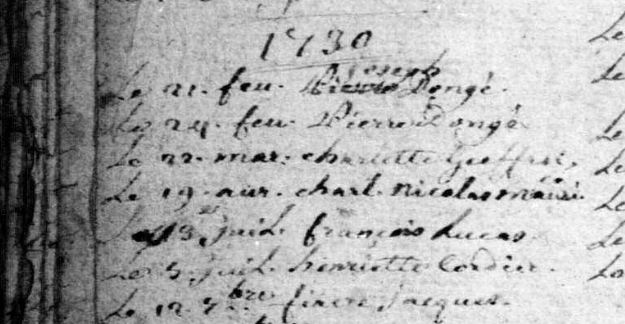 1730
Le 21. feu. Joseph Dongé.
Le 24 feu. Pierre Dongé
Le 22. mar. charlotte
Le 19. aur. charl. nicolas
Le 13 Juil. françois Lucas
Le 5 Juil. henriette Cordier.
Le 12 7bre fiacre Jacques.
Le
Le
Le
Le
Le
Le